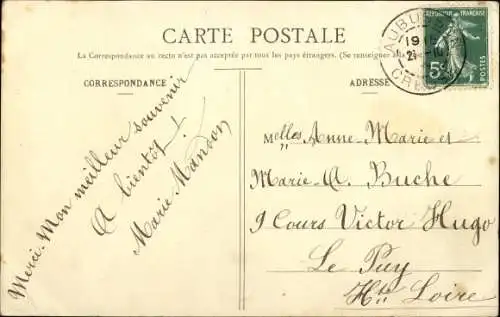 CARTE POSTALE
La Correspondance au recto n'est pas acceptée par tous les pays étrangers. (Se renseigner à la
CORRESPONDANCE
ADRESSE
Merci. Mon meilleur souvenir
A bientôt !
Marie Mandon
Melles Anne-Marie et
Marie-A. Buche
9 Cours Victor Hugo
Le Puy
Hte Loire
REPUBLIQUE FRANÇAISE
5c
POSTES
AUBU
19
21
CRE